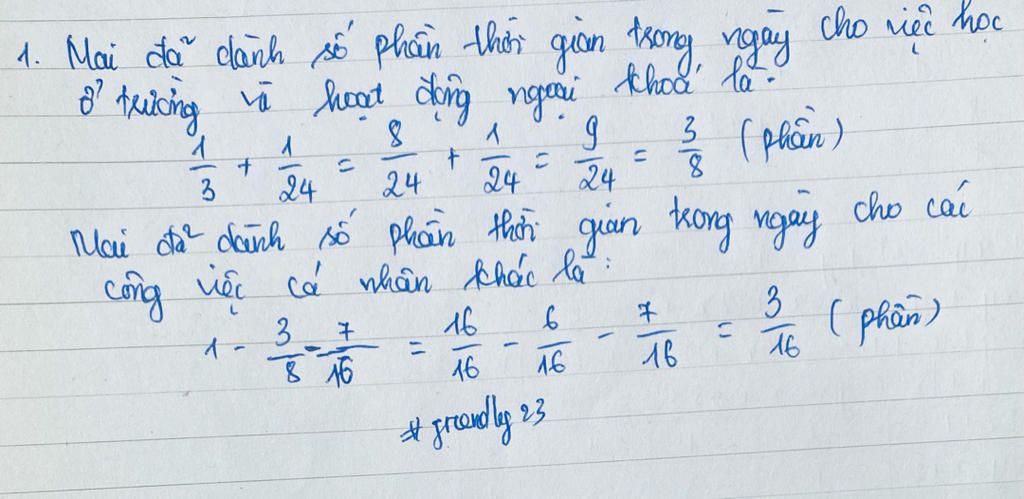 1. Mai đã dành số phần thời gian trong ngày cho việc học
ở trường và hoạt động ngoại khoá là:
1/3 + 1/24 = 8/24 + 1/24 = 9/24 = 3/8 (phần)
Mai đã dành số phần thời gian trong ngày cho các
công việc cá nhân khác là:
1 - 3/8 - 7/16 = 16/16 - 6/16 - 7/16 = 3/16 (phần)